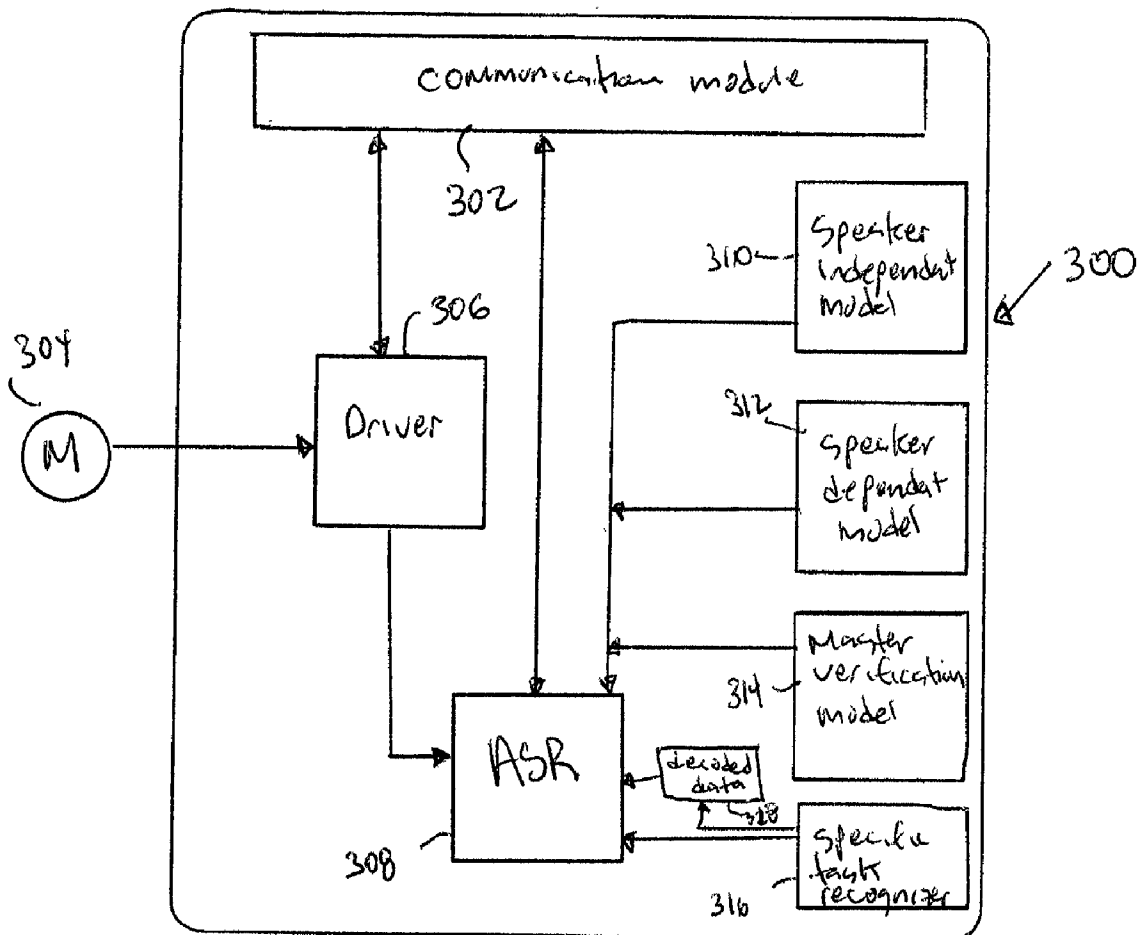 communication module
302
310
Speaker
independat
model
300
304
306
M
Driver
312
Speaker
dependat
model
314
Master
verification
model
ASR
decoded
data
318
308
316
Specific
task
recognizer